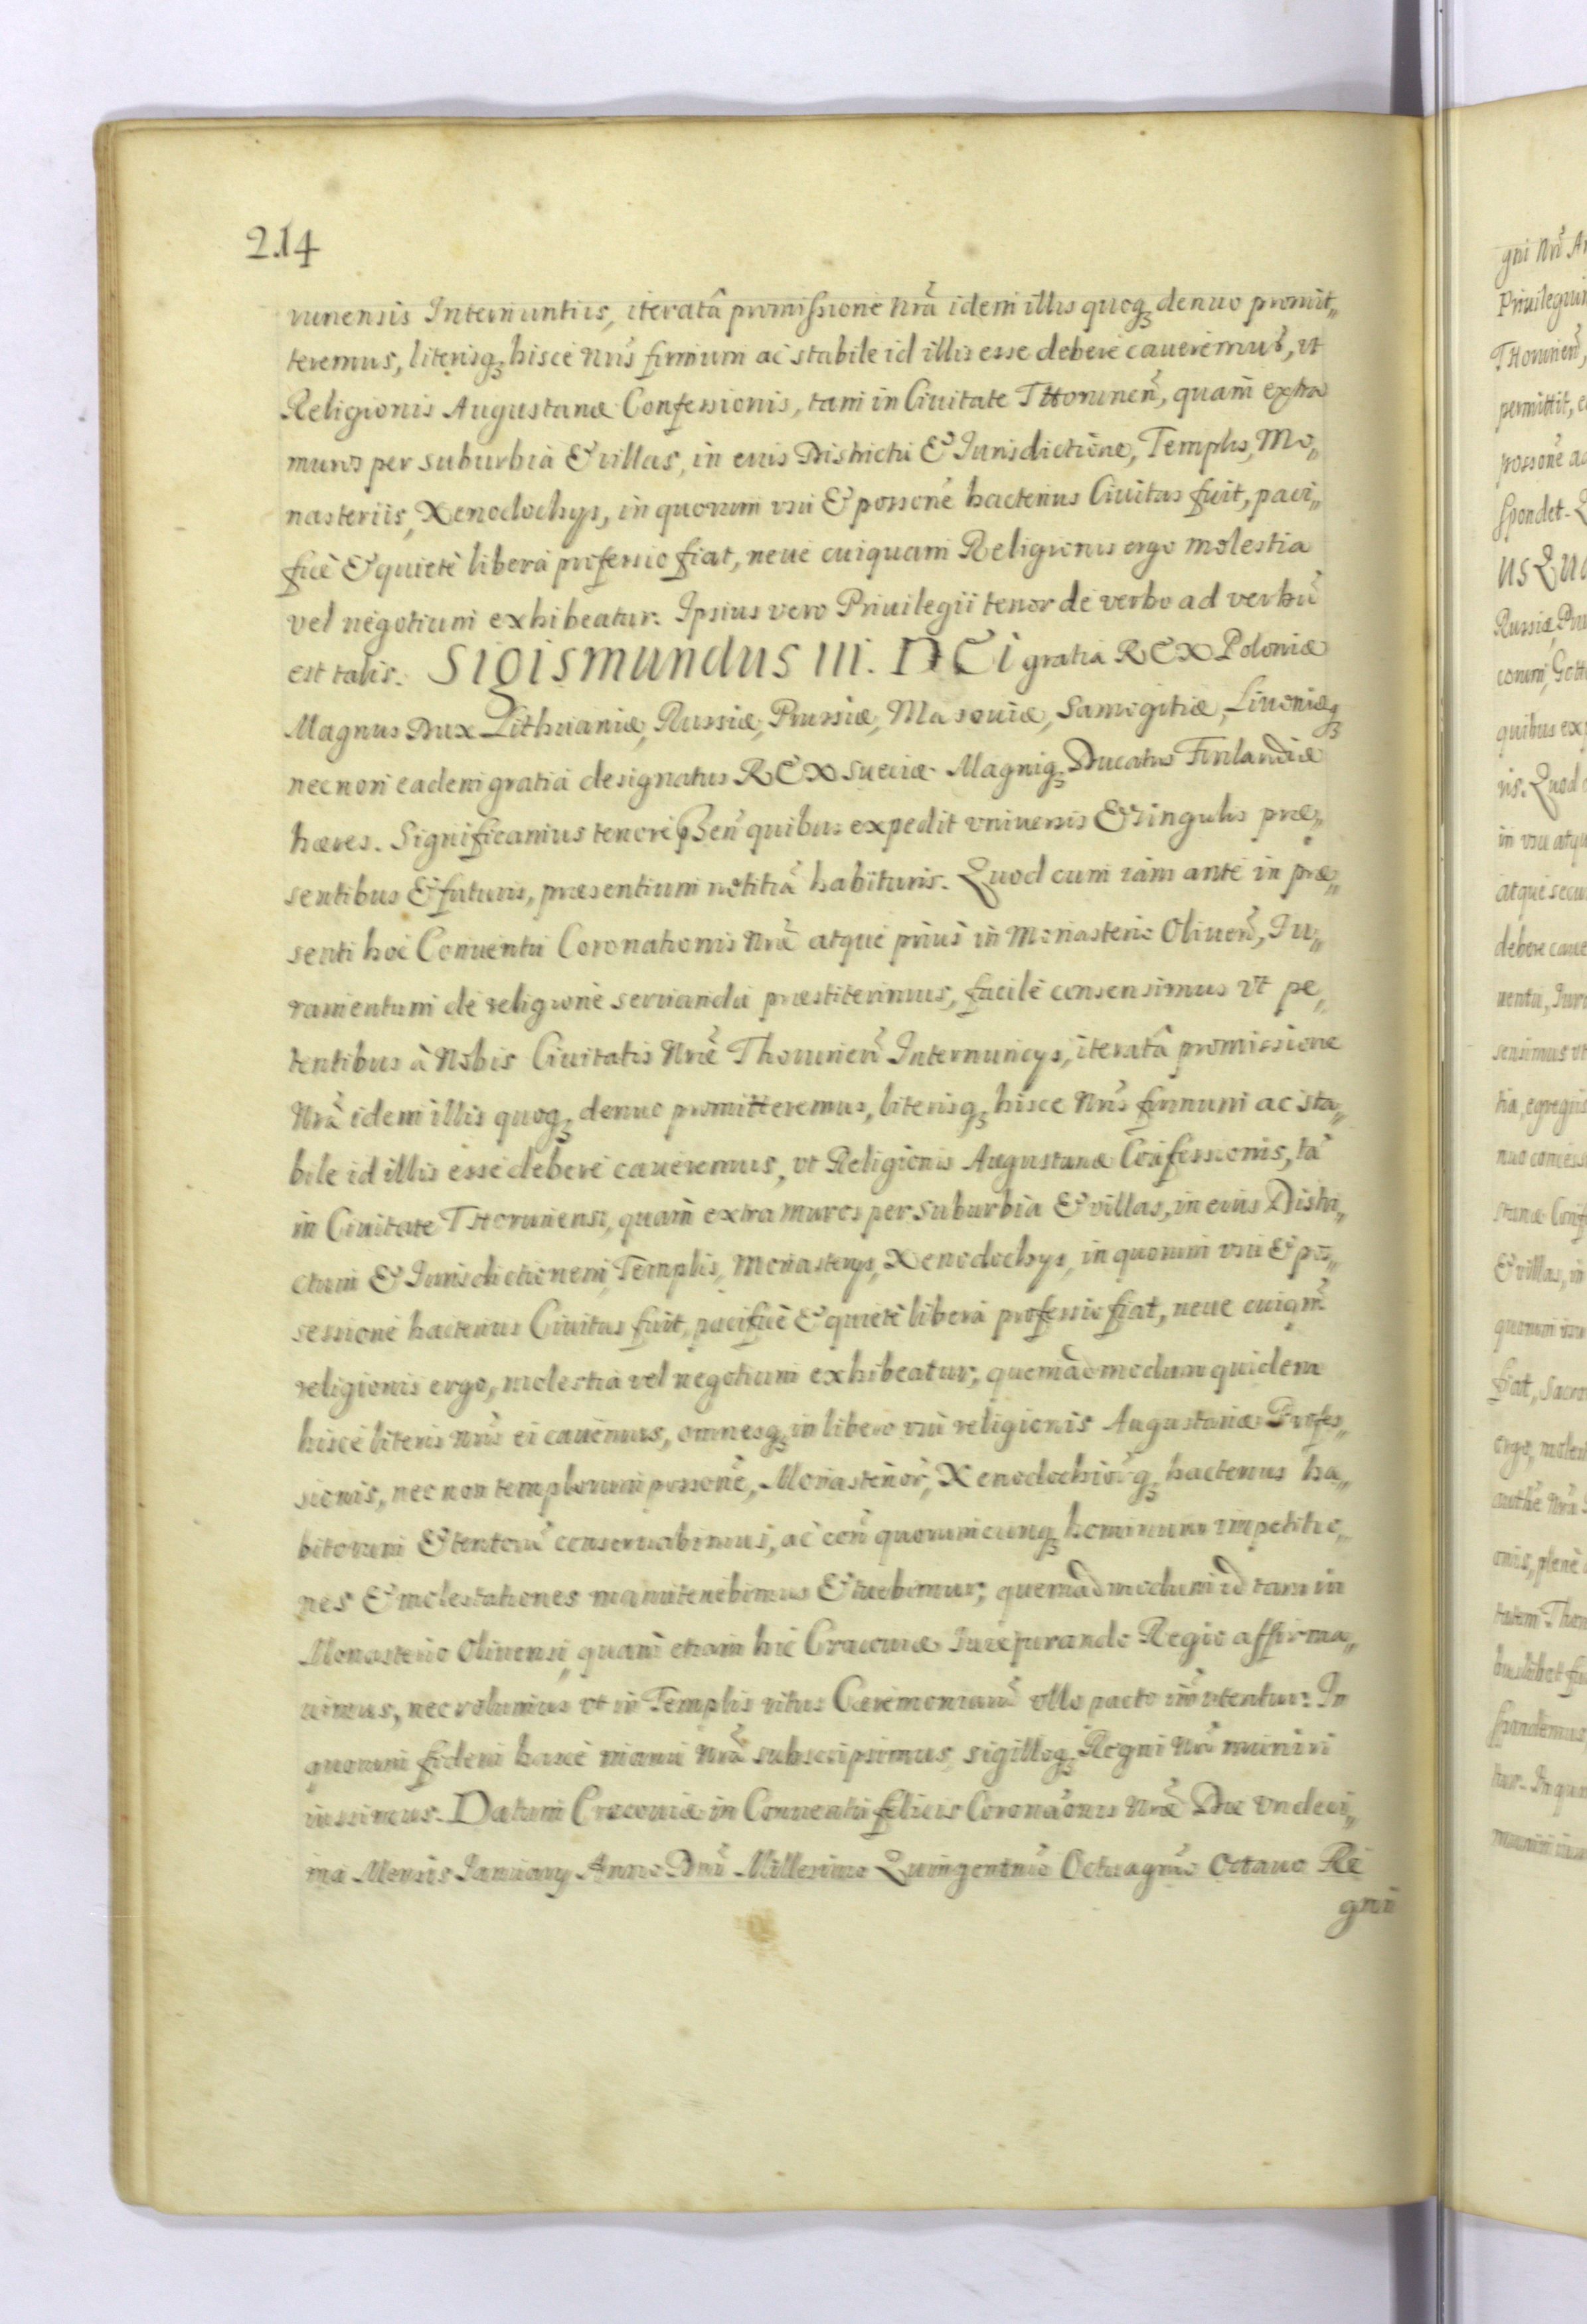 214
runensis Internuntiis, iteratâ promissione nrã idem illis quoq; denuo promit„
teremus, literisq; hisce nr̃is firmum ac stabile id illis esse debere caueremus, vt
Religionis Augustanæ Confessionis, tam in Ciuitate Thorunen̄, quam extra
muros per suburbia & villas, in euis Districtu & Jurisdictione, Templis, Mo„
nasteriis, Xenodochijs, in quorum vsu & possonē hactenus Ciuitas fuit, paci„
ficè & quietè libera professio fiat, neue cuiquam Religionis ergo molestia
vel negotium exhibeatur. Ipsius vero Priuilegii tenor de verbo ad verbũ
est talis. Sigismundus III. DEi gratia REX Poloniæ
Magnus Dux Lithuaniæ, Russiæ, Prussiæ, Masouiæ, Samogitiæ, Liuoniæq;
necnon eadem gratia designatus REX Sueciæ Magniq; Ducatus Finlandiæ
hæres. Significamus tenore p̃sen̄ quibus expedit vniuersis & singulis præ„
sentibus & futuris, præsentium notitiã habituris. Quod cum iam ante in præ„
senti hoc Conuentu Coronationis nrẽ atque priùs in Monasterio Oliuen̄, Ju„
ramentum de religione seruanda præstiterimus, facile consensimus vt pe„
tentibus à Nobis Ciuitatis nrẽ Thorunen̄ Internuncijs, iteratâ promissione
nrã idem illis quoq; denuo promitteremus, literisq; hisce nr̃is firmum ac sta„
bile id illis esse debere caueremus, vt Religionis Augustanæ Confessionis, tã
in Ciuitate Thorunensi, quam extra muros per suburbia & villas, in eius Distri„
ctum & Jurisdictionem, Templis, Monasterijs, Xenodochijs, in quorum vsu & pos„
sessione hactenus Ciuitas fuit, pacificè & quietè libera professio fiat, neue cuiqm̃
religionis ergo, molestia vel negotium exhibeatur; quemadmodum quidem
hisce literis nr̃is ei cauemus, omnesq; in libero vsu religionis Augustanæ Profes„
sionis, nec non templorum possonē, Monasterior̃, Xenodochior̃q; hactenus ha„
bitorum & tentorũ conseruabimus, ac con̄ quorumcunq; hominum impetitio„
nes & molestationes manutenebimus & tuebimur; quemadmodum id tam in
Monasterio Oliuensi, quam etiam hic Cracouiæ Jurejurando Regio affirma„
uimus, nec volumus vt in Templis ritus Cæremoniarũ vllo pacto im̃utentur. In
quorum fidem hasce manu nrã subscripsimus, sigilloq; Regni nrĩ muniri
iussimus. Datum Cracouiæ in Conuentu felicis Coronaõnis nrẽ Die vndeci„
ma Mensis Januarij Anno Dnĩ Millesimo Quingentm̃o Octuagm̃o Octauo Re
gni